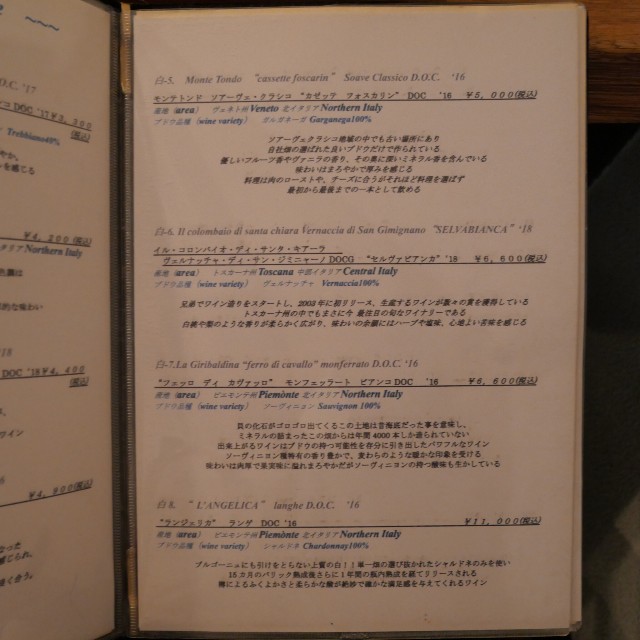 C. '17
DOC '17 ¥5,300
(税込)
Trebbiano40%
¥4,200 (税込)
イタリアNorthern Italy
'18
DOC '18 ¥4,400
(税込)
イタリアNorthern Italy
白-5. Monte Tondo “cassette foscarin” Soave Classico D.O.C. ‘16
モンテトンド ソアーヴェ・クラシコ “カゼッテ フォスカリン” DOC ’16 ¥5,000(税込)
産地 (area) ヴェネト州 Veneto 北イタリア Northern Italy
ブドウ品種 (wine variety) ガルガネーガ Garganega100%
ソアーヴェクラシコ地域の中でも古い場所にあり
自社畑の選ばれた良いブドウだけで作られている
優しいフルーツ香やヴァニラの香り、その奥に深いミネラル香を含んでいる
味わいはまろやかで厚みを感じる
料理は肉のローストや、チーズに合うがそれほど料理を選ばず
最初から最後までの一本として飲める
白-6. Il colombaio di santa chiara Vernaccia di San Gimignano “SELVABIANCA” ‘18
イル・コロンバイオ・ディ・サンタ・キアーラ
ヴェルナッチャ・ディ・サン・ジミニャーノ DOCG “セルヴァビアンカ” ’18 ¥6,600(税込)
産地 (area) トスカーナ州 Toscana 中部イタリア Central Italy
ブドウ品種 (wine variety) ヴェルナッチャ Vernaccia100%
兄弟でワイン造りをスタートし、2003年に初リリース、生産するワインが数々の賞を獲得している
トスカーナ州の中でもまさに今 最注目の旬なワイナリーである
白桃や梨のような香りが柔らかく広がり、味わいの余韻にはハーブや塩味、心地よい苦味を感じる
白-7.La Giribaldina “ferro di cavallo” monferrato D.O.C. ‘16
“フェッロ ディ カヴァッロ” モンフェッラート ビアンコ DOC ’16 ¥6,600(税込)
産地 (area) ピエモンテ州 Piemònte 北イタリア Northern Italy
ブドウ品種 (wine variety) ソーヴィニヨン Sauvignon 100%
貝の化石がゴロゴロ出てくるこの土地は昔海底だった事を意味し、
ミネラルの詰まったこの畑からは年間 4000 本しか造られていない
出来上がるワインはブドウの持つ可能性を存分に引き出したパワフルなワイン
ソーヴィニヨン種特有の香り豊かで、変わらのような暖かな印象を受ける
味わいは肉厚で果実味に溢れまろやかだがソーヴィニヨンの持つ酸味も生かしている
白 8. “ L’ANGELICA” langhe D.O.C. ‘16
“ランジェリカ” ランゲ DOC ’16 ¥11,000(税込)
産地 (area) ピエモンテ州 Piemònte 北イタリア Northern Italy
ブドウ品種 (wine variety) シャルドネ Chardonnay100%
ブルゴーニュにも引けをとらない上質の白！！単一畑の選び抜かれたシャルドネのみを使い
15カ月のバリック熟成後さらに1年間の瓶内熟成を経てリリースされる
樽によるふくよかさと柔らかな酸が絶妙で確かな満足感を与えてくれるワイン